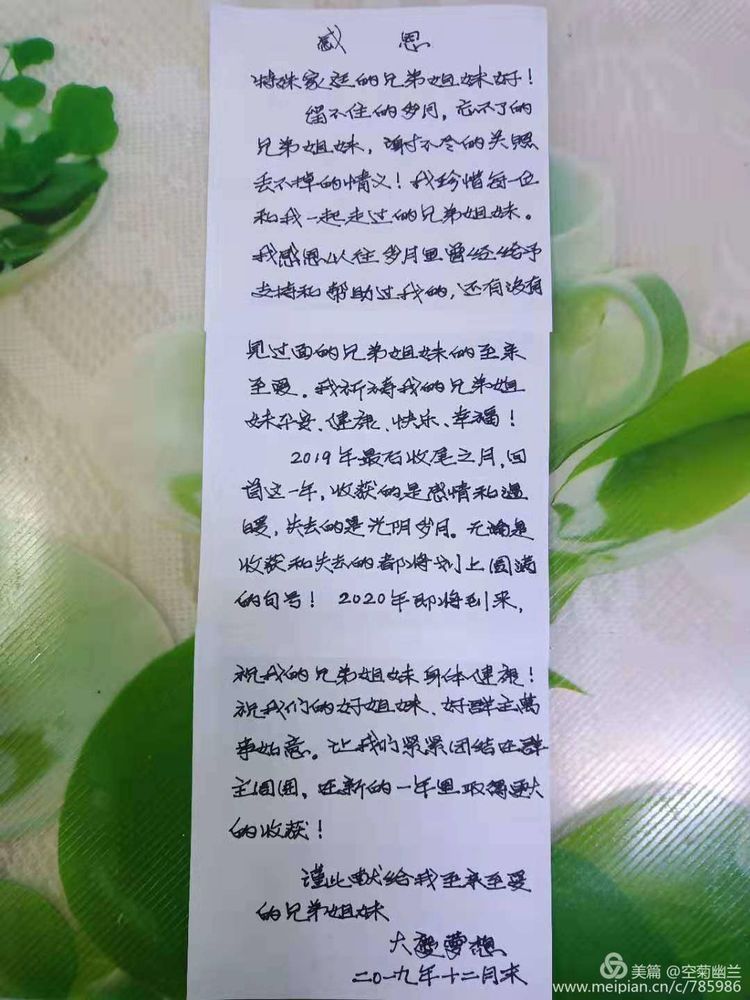 感 恩
特殊家庭的兄弟姐妹好!
留不住的岁月,忘不了的
兄弟姐妹,谢不尽的关照
丢不掉的情义!我珍惜每一位
和我一起走过的兄弟姐妹。
我感恩以往岁月里曾经给予
支持和帮助过我的,还有没有
见过面的兄弟姐妹的至亲
至爱。我祈祷我的兄弟姐
妹平安、健康、快乐、幸福!
2019年最后收尾之月,回
首这一年,收获的是感情和温
暖,失去的是光阴岁月。无论是
收获和失去的都将划上圆满
的句号!2020年即将到来,
祝我的兄弟姐妹身体健康!
祝我们的好姐妹、好群主萬
事如意。让我们紧紧团结在群
主周围,在新的一年里取得更大
的收获!
谨此献给我至亲至爱
的兄弟姐妹
大 夢想
二〇一九年十二月末
美篇 @空菊幽兰
www.meipian.cn/c/785986